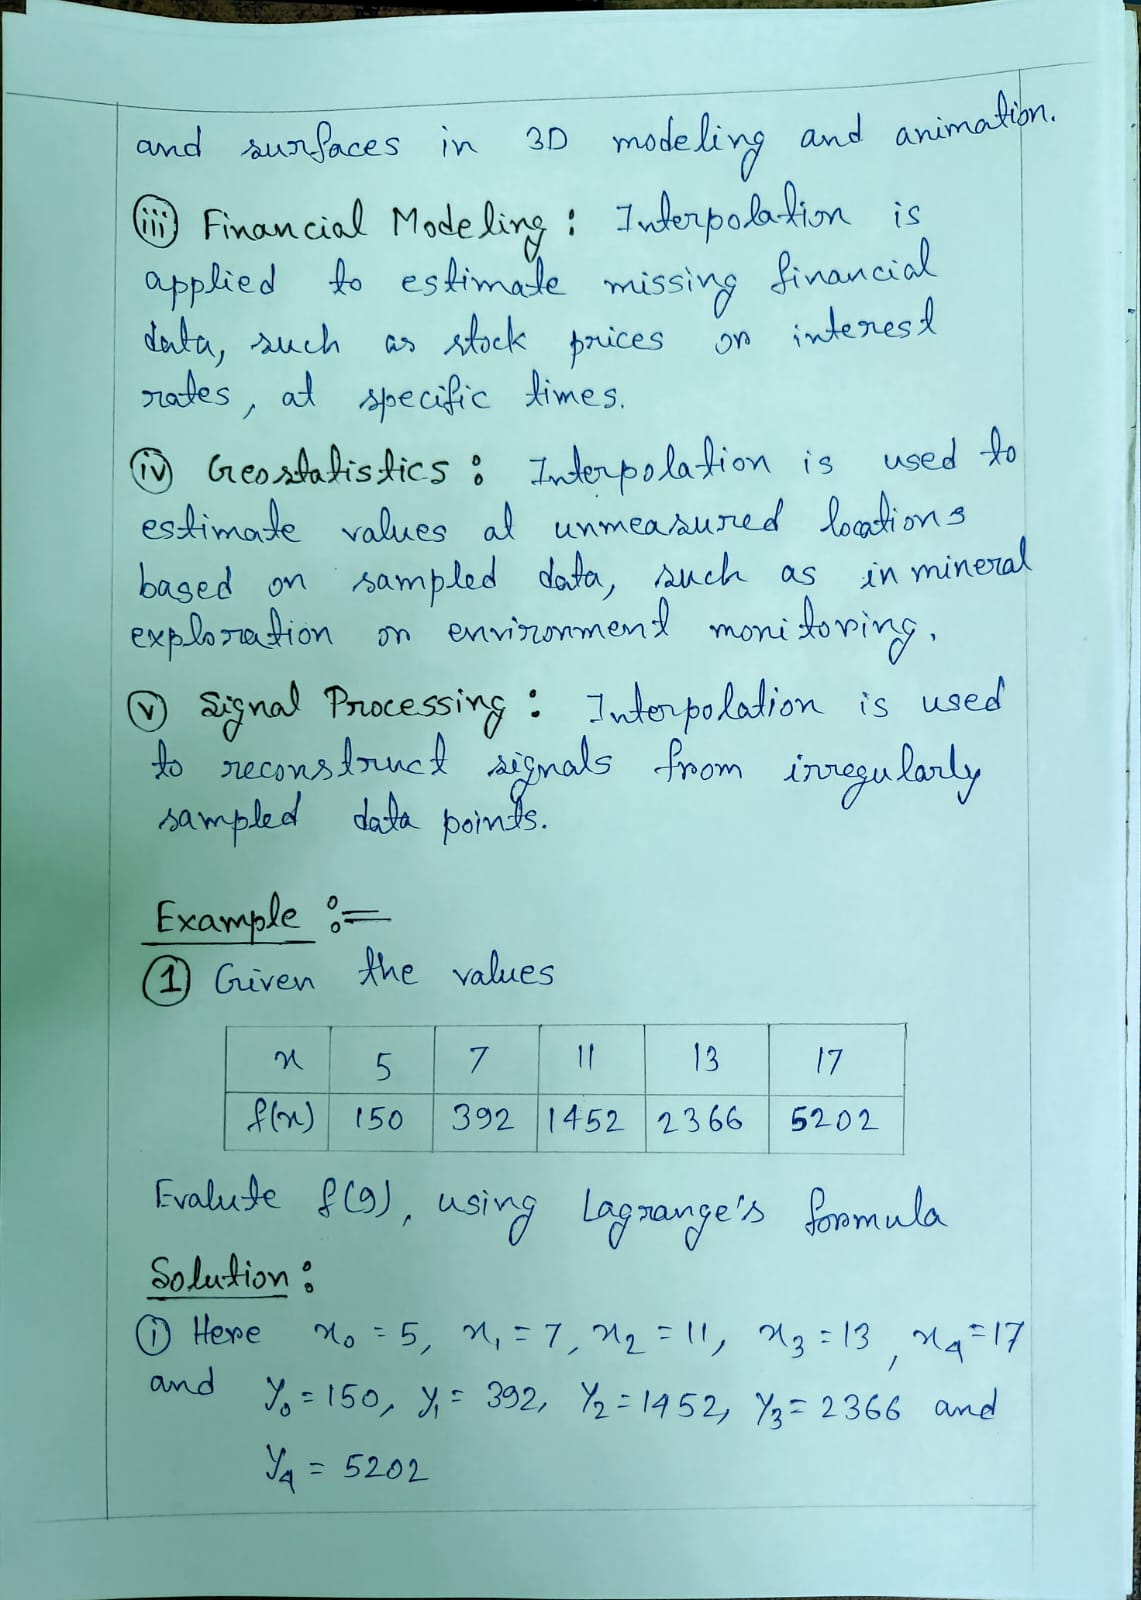 and surfaces in 3D modeling and animation.
(iii) Financial Modeling : Interpolation is
applied to estimate missing financial
data, such as stock prices or interest
rates, at specific times.
(iv) Geostatistics : Interpolation is used to
estimate values at unmeasured locations
based on sampled data, such as in mineral
exploration or environment monitoring.
(v) Signal Processing : Interpolation is used
to reconstruct signals from irregularly
sampled data points.
Example :=
(1) Given the values
x 5 7 11 13 17
f(x) 150 392 1452 2366 5202
Evalute f(9), using Lagrange's formula
Solution :
(i) Here x₀ = 5, x₁ = 7, x₂ = 11, x₃ = 13, x₄ = 17
and y₀ = 150, y₁ = 392, y₂ = 1452, y₃ = 2366 and
y₄ = 5202